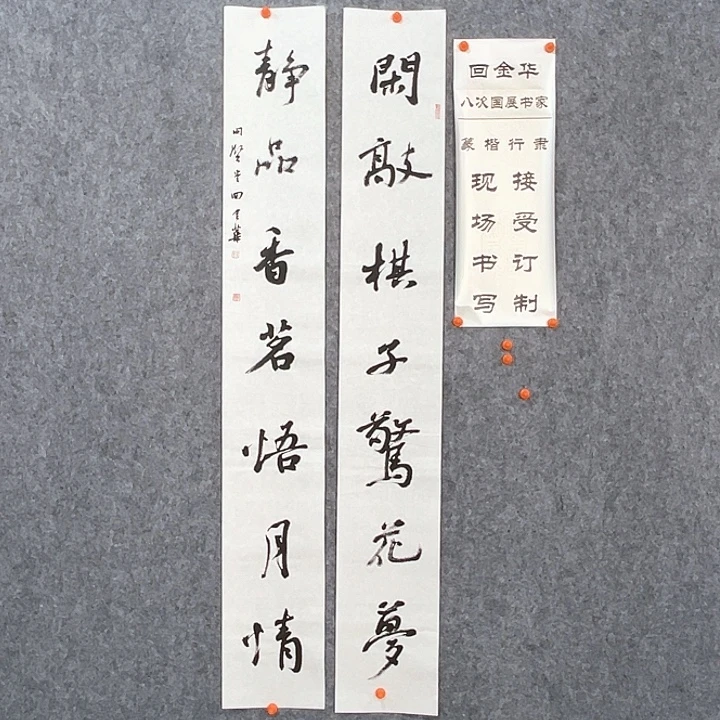 閑敲棋子驚花夢
静品香茗悟月情
回金华
八次国展书家
篆楷行隶
现场书写
接受订制